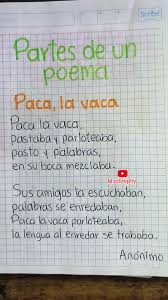 Scribe
Partes de un
poema
Paca, la vaca
Paca la vaca
pastaba y parloteaba,
pasto y palabras,
en su boca mezclaba.
Sus amigos la escuchaban,
palabras se enredaban,
Paca la vaca parloteaba,
la lengua al enredar se trababa.
Anónimo